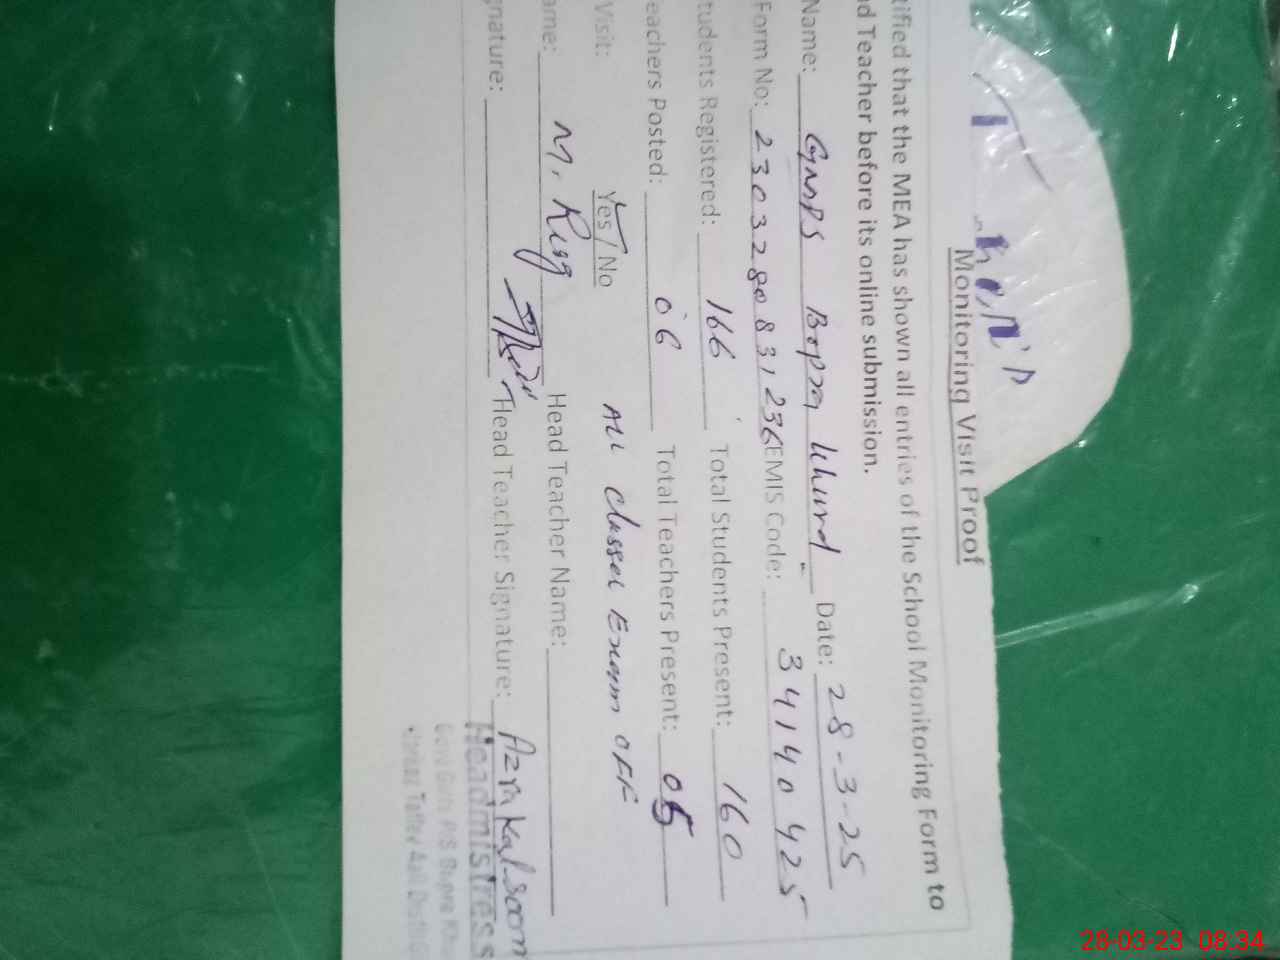 Monitoring Visit Proof
tified that the MEA has shown all entries of the School Monitoring Form to
d Teacher before its online submission.
Name: GMPS Bopra Khurd Date: 28-3-25
Form No: 230328083,236 EMIS Code: 34140425
tudents Registered: 166 Total Students Present: 160
eachers Posted: 06 Total Teachers Present: 05
Visit: Yes/No All Classes Exam OFF
ame: M. Riaz Head Teacher Name:
gnature: Head Teacher Signature: Azra Kalsoom
Headmistress
28-03-23 08:34